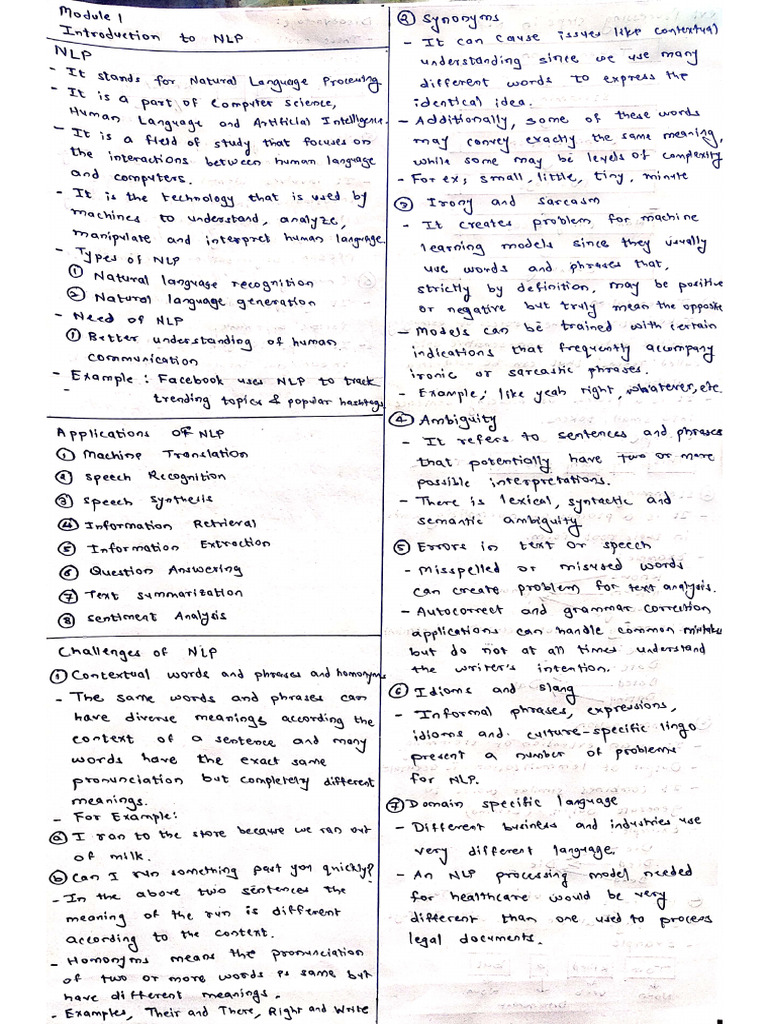 Module 1
Introduction to NLP
NLP
- It stands for Natural Language Processing
- It is a part of Computer Science,
Human Language and Artificial Intelligence.
- It is a field of study that focuses on
the interactions between human language
and computers.
- It is the technology that is used by
machines to understand, analyze,
manipulate and interpret human language.
- Types of NLP
① Natural language recognition
② Natural language generation
- Need of NLP
① Better understanding of human
communication
- Example : Facebook uses NLP to track
trending topics & popular hashtags
Applications of NLP
① Machine Translation
② Speech Recognition
③ Speech Synthesis
④ Information Retrieval
⑤ Information Extraction
⑥ Question Answering
⑦ Text summarization
⑧ Sentiment Analysis
Challenges of NLP
① Contextual words and phrases and homonyms
- The same words and phrases can
have diverse meanings according the
context of a sentence and many
words have the exact same
pronunciation but completely different
meanings.
- For Example:
ⓐ I ran to the store because we ran out
of milk.
ⓑ Can I run something past you quickly?
- In the above two sentences the
meaning of the run is different
according to the context.
- Homonyms means the pronunciation
of two or more words is same but
have different meanings.
- Examples, Their and There, Right and Write
② Synonyms
- It can cause issues like contextual
understanding since we use many
different words to express the
identical idea.
- Additionally, some of these words
may convey exactly the same meaning,
while some may be levels of complexity
- For ex; small, little, tiny, minute
③ Irony and sarcasm
- It creates problem for machine
learning models since they usually
use words and phrases that,
strictly by definition, may be positive
or negative but truly mean the opposite
- Models can be trained with certain
indications that frequently accompany
ironic or sarcastic phrases.
- Example; like yeah right, whatever, etc.
④ Ambiguity
- It refers to sentences and phrases
that potentially have two or more
possible interpretations.
- There is lexical, syntactic and
semantic ambiguity
⑤ Errors in text or speech
- Misspelled or misused words
can create problem for text analysis.
- Autocorrect and grammar correction
applications can handle common mistakes
but do not at all times understand
the writer's intention.
⑥ Idioms and slang
- Informal phrases, expressions,
idioms and culture-specific lingo
present a number of problems
for NLP.
⑦ Domain specific language
- Different business and industries use
very different language.
- An NLP processing model needed
for healthcare would be very
different than one used to process
legal documents.